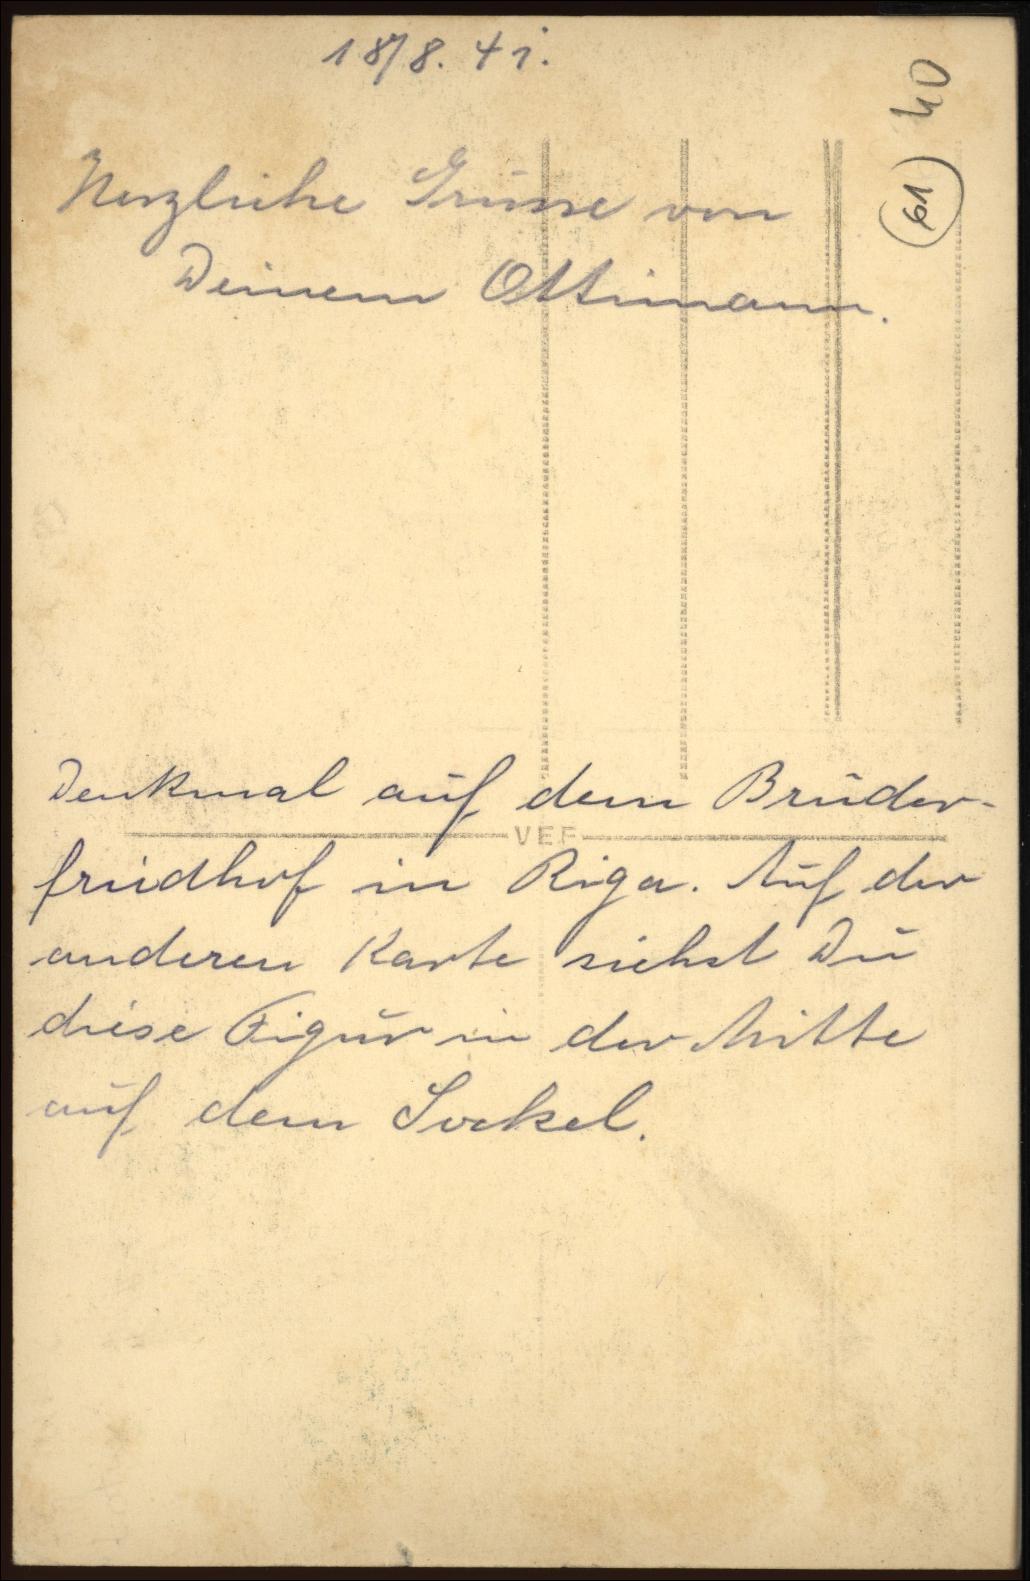 18/8. 41.
40
61
Herzliche Grüsse von
Deinem Ottimann.
Denkmal auf dem Brüder-
VEF
friedhof in Riga. Auf der
anderen Karte siehst Du
diese Figur in der Mitte
auf dem Sockel.